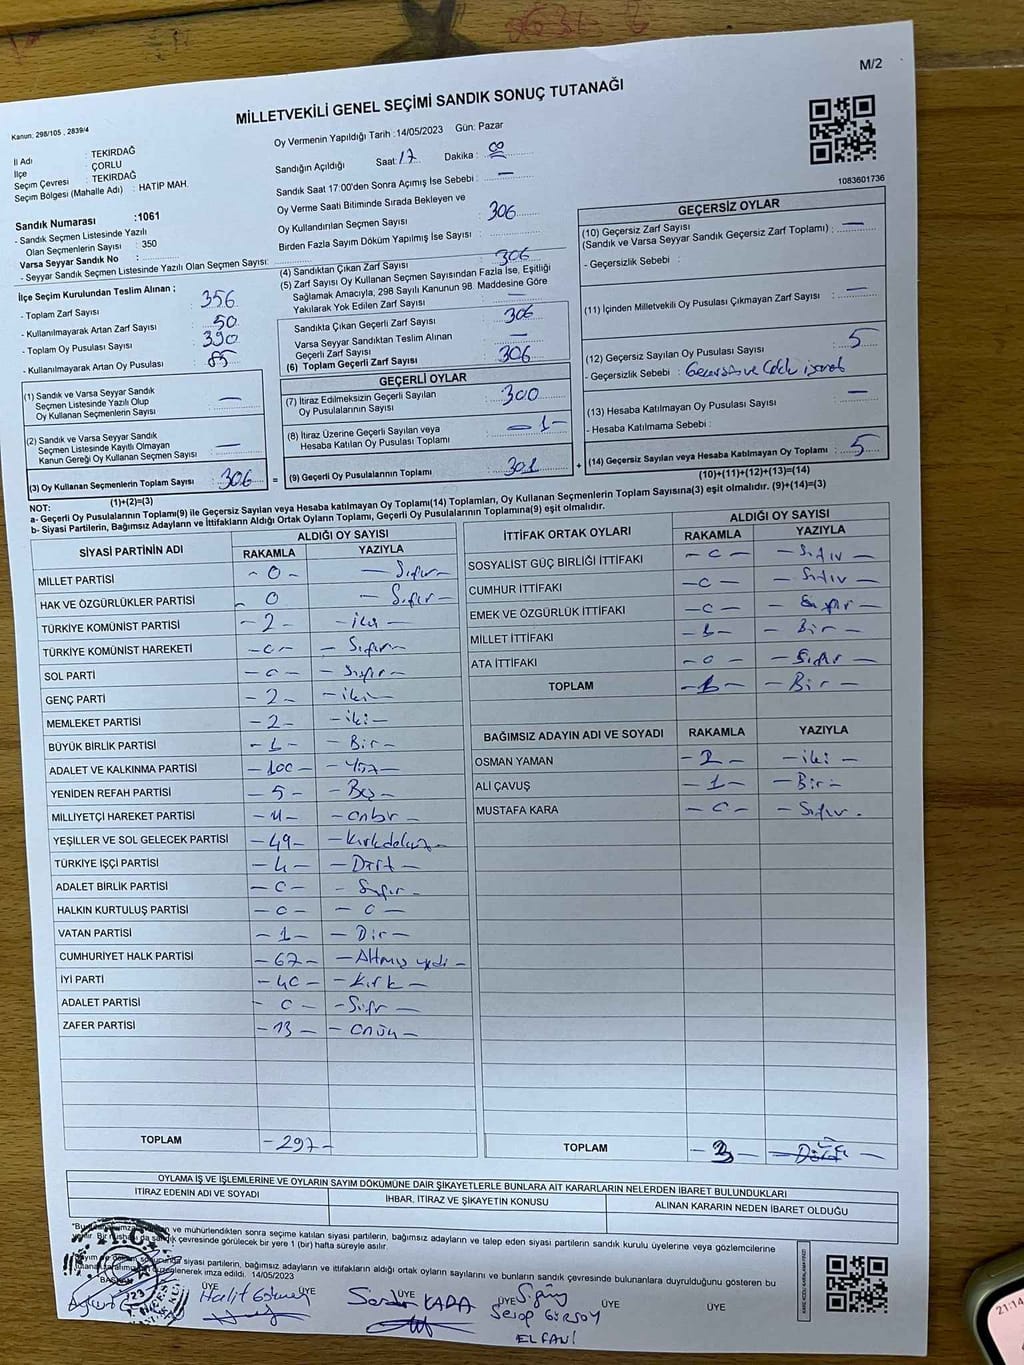 M/2
MİLLETVEKİLİ GENEL SEÇİMİ SANDIK SONUÇ TUTANAĞI
Kanun: 298/105 , 2839/4
İl Adı : TEKİRDAĞ
İlçe : ÇORLU
Seçim Çevresi : TEKİRDAĞ
Seçim Bölgesi (Mahalle Adı) : HATIP MAH.
Sandık Numarası :1061
- Sandık Seçmen Listesinde Yazılı
Olan Seçmenlerin Sayısı : 350
Varsa Seyyar Sandık No :
- Seyyar Sandık Seçmen Listesinde Yazılı Olan Seçmen Sayısı:
İlçe Seçim Kurulundan Teslim Alınan ;
- Toplam Zarf Sayısı : 356
- Kullanılmayarak Artan Zarf Sayısı : 50
- Toplam Oy Pusulası Sayısı : 390
- Kullanılmayarak Artan Oy Pusulası : 85
(1) Sandık ve Varsa Seyyar Sandık
Seçmen Listesinde Yazılı Olup
Oy Kullanan Seçmenlerin Sayısı : —
(2) Sandık ve Varsa Seyyar Sandık
Seçmen Listesinde Kayıtlı Olmayan
Kanun Gereği Oy Kullanan Seçmen Sayısı : —
(3) Oy Kullanan Seçmenlerin Toplam Sayısı : 306
(1)+(2)=(3)
Oy Vermenin Yapıldığı Tarih :14/05/2023 Gün: Pazar
Sandığın Açıldığı Saat:17 Dakika : 00
Sandık Saat 17:00'den Sonra Açımış İse Sebebi : —
Oy Verme Saati Bitiminde Sırada Bekleyen ve
Oy Kullandırılan Seçmen Sayısı : 306
Birden Fazla Sayım Döküm Yapılmış İse Sayısı :
(4) Sandıktan Çıkan Zarf Sayısı : 306
(5) Zarf Sayısı Oy Kullanan Seçmen Sayısından Fazla İse, Eşitliği
Sağlamak Amacıyla, 298 Sayılı Kanunun 98. Maddesine Göre
Yakılarak Yok Edilen Zarf Sayısı : —
Sandıkta Çıkan Geçerli Zarf Sayısı : 306
Varsa Seyyar Sandıktan Teslim Alınan
Geçerli Zarf Sayısı : —
(6) Toplam Geçerli Zarf Sayısı : 306
GEÇERLİ OYLAR
(7) İtiraz Edilmeksizin Geçerli Sayılan
Oy Pusulalarının Sayısı : 300
(8) İtiraz Üzerine Geçerli Sayılan veya
Hesaba Katılan Oy Pusulası Toplamı : -1-
= (9) Geçerli Oy Pusulalarının Toplamı : 301 +
1083601736
GEÇERSİZ OYLAR
(10) Geçersiz Zarf Sayısı
(Sandık ve Varsa Seyyar Sandık Geçersiz Zarf Toplamı) : —
- Geçersizlik Sebebi :
(11) İçinden Milletvekili Oy Pusulası Çıkmayan Zarf Sayısı : —
(12) Geçersiz Sayılan Oy Pusulası Sayısı : 5
- Geçersizlik Sebebi :
(13) Hesaba Katılmayan Oy Pusulası Sayısı : —
- Hesaba Katılmama Sebebi :
(14) Geçersiz Sayılan veya Hesaba Katılmayan Oy Toplamı : 5
(10)+(11)+(12)+(13)=(14)
NOT:
a- Geçerli Oy Pusulasının Toplamı(9) ile Geçersiz Sayılan veya Hesaba katılmayan Oy Toplamı(14) Toplamları, Oy Kullanan Seçmenlerin Toplam Sayısına(3) eşit olmalıdır. (9)+(14)=(3)
b- Siyasi Partilerin, Bağımsız Adayların ve İttifakların Aldığı Ortak Oyların Toplamı, Geçerli Oy Pusulalarının Toplamına(9) eşit olmalıdır.
SİYASİ PARTİNİN ADI ALDIĞI OY SAYISI
RAKAMLA YAZIYLA
MİLLET PARTİSİ - 0 - — Sıfır —
HAK VE ÖZGÜRLÜKLER PARTİSİ - 0 — Sıfır —
TÜRKİYE KOMÜNİST PARTİSİ - 2 - - iki -
TÜRKİYE KOMÜNİST HAREKETİ - 0 - - Sıfır -
SOL PARTİ - 0 - - Sıfır -
GENÇ PARTİ - 2 - - iki -
MEMLEKET PARTİSİ - 2 - - iki -
BÜYÜK BİRLİK PARTİSİ - 1 - - Bir -
ADALET VE KALKINMA PARTİSİ - 100 - - Yüz -
YENİDEN REFAH PARTİSİ - 5 - - Beş -
MİLLİYETÇİ HAREKET PARTİSİ - 11 - - onbir -
YEŞİLLER VE SOL GELECEK PARTİSİ - 49 - - Kırkdokuz -
TÜRKİYE İŞÇİ PARTİSİ - 4 - - Dört -
ADALET BİRLİK PARTİSİ - 0 - - Sıfır -
HALKIN KURTULUŞ PARTİSİ - 0 - - 0 -
VATAN PARTİSİ - 1 - - Bir -
CUMHURİYET HALK PARTİSİ - 67 - - Altmış yedi -
İYİ PARTİ - 40 - - Kırk -
ADALET PARTİSİ - 0 - - Sıfır -
ZAFER PARTİSİ - 13 - - onüç -
TOPLAM - 297 -
İTTİFAK ORTAK OYLARI ALDIĞI OY SAYISI
RAKAMLA YAZIYLA
SOSYALİST GÜÇ BİRLİĞİ İTTİFAKI - 0 - - Sıfır -
CUMHUR İTTİFAKI - 0 - - Sıfır -
EMEK VE ÖZGÜRLÜK İTTİFAKI - 0 - - Sıfır -
MİLLET İTTİFAKI - 1 - - Bir -
ATA İTTİFAKI - 0 - - Sıfır -
TOPLAM - 1 - - Bir -
BAĞIMSIZ ADAYIN ADI VE SOYADI RAKAMLA YAZIYLA
OSMAN YAMAN - 2 - - iki -
ALİ ÇAVUŞ - 1 - - Bir -
MUSTAFA KARA - 0 - - Sıfır .
TOPLAM - 3 -
OYLAMA İŞ VE İŞLEMLERİNE VE OYLARIN SAYIM DÖKÜMÜNE DAİR ŞİKAYETLERLE BUNLARA AİT KARARLARIN NELERDEN İBARET BULUNDUKLARI
İTİRAZ EDENİN ADI VE SOYADI İHBAR, İTİRAZ VE ŞİKAYETİN KONUSU ALINAN KARARIN NEDEN İBARET OLDUĞU
ve mühürlendikten sonra seçime katılan siyasi partilerin, bağımsız adayların ve talep eden siyasi partilerin sandık kurulu üyelerine veya gözlemcilerine
çevresinde görülecek bir yere 1 (bir) hafta süreyle asılır.
siyasi partilerin, bağımsız adayların ve ittifakların aldığı ortak oyların sayılarını ve bunların sandık çevresinde bulunanlara duyrulduğunu gösteren bu
imza edildi. 14/05/2023
BAŞKAN ÜYE ÜYE ÜYE ÜYE ÜYE ÜYE
Halit Serdar KARA Serap GÜRSOY
ELFANİ
21:14